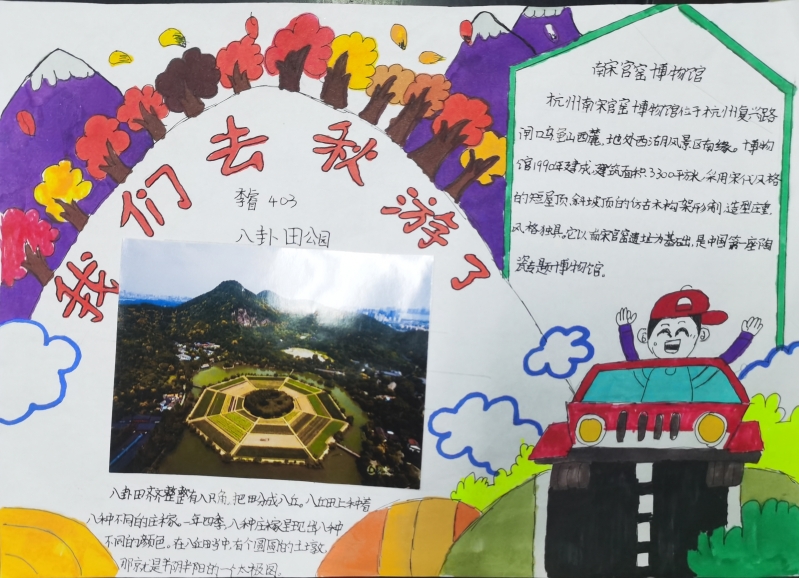 我们去秋游了
李睿 403
八卦田公园
八卦田齐整整有八只角，把田分成八丘。八丘田上种着
八种不同的庄稼。一年四季，八种庄稼呈现出八种
不同的颜色。在八丘田当中，有个圆圆的土墩，
那就是半阴半阳的一个太极图。
南宋官窑博物馆
杭州南宋官窑博物馆位于杭州复兴路
闸口乌龟山西麓，地处西湖风景区南缘。博物
馆1990年建成，建筑面积3300平方米，采用宋代风格
的短屋顶、斜坡顶的仿古木构架形制，造型庄重，
风格独具。它以南宋官窑遗址为基础，是中国第一座陶
瓷专题博物馆。